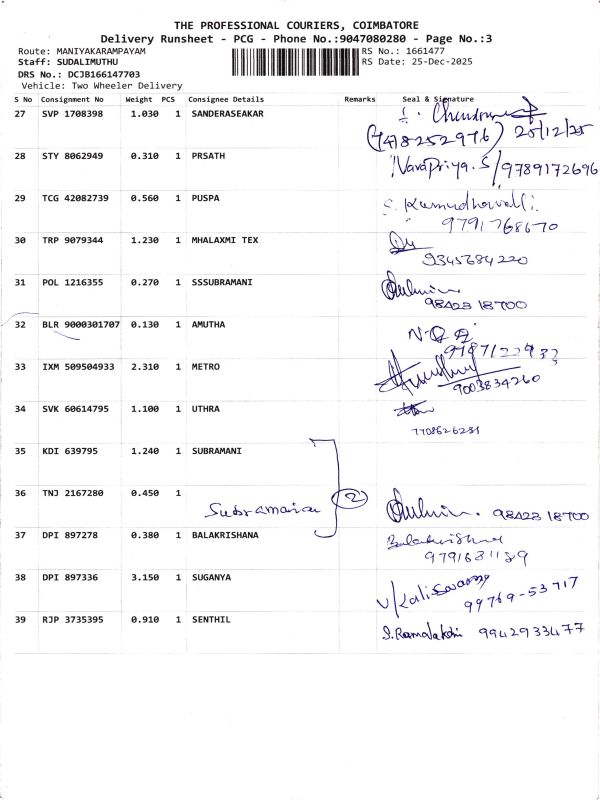 THE PROFESSIONAL COURIERS, COIMBATORE
Delivery Runsheet - PCG - Phone No.:9047080280 - Page No.:3
Route: MANIYAKARAMPAYAM RS No.: 1661477
Staff: SUDALIMUTHU RS Date: 25-Dec-2025
DRS No.: DCJB166147703
Vehicle: Two Wheeler Delivery
S No Consignment No Weight PCS Consignee Details Remarks Seal & Signature
27 SVP 1708398 1.030 1 SANDERASEAKAR
(7418252976) 25/12/25
28 STY 8062949 0.310 1 PRSATH Varapriya.S/9789172696
29 TCG 42082739 0.560 1 PUSPA S. Kamudhavalli
9791768670
30 TRP 9079344 1.230 1 MHALAXMI TEX
9345684220
31 POL 1216355 0.270 1 SSSUBRAMANI
98428 18700
32 BLR 9000301707 0.130 1 AMUTHA
33 IXM 509504933 2.310 1 METRO
9003834260
34 SVK 60614795 1.100 1 UTHRA
7708626251
35 KDI 639795 1.240 1 SUBRAMANI
36 TNJ 2167280 0.450 1 Subramanian 2 98428 18700
37 DPI 897278 0.380 1 BALAKRISHANA Balakrishna
9791681189
38 DPI 897336 3.150 1 SUGANYA V/Kaliswamy
99769-53717
39 RJP 3735395 0.910 1 SENTHIL S.Ramalakshi 9942933477